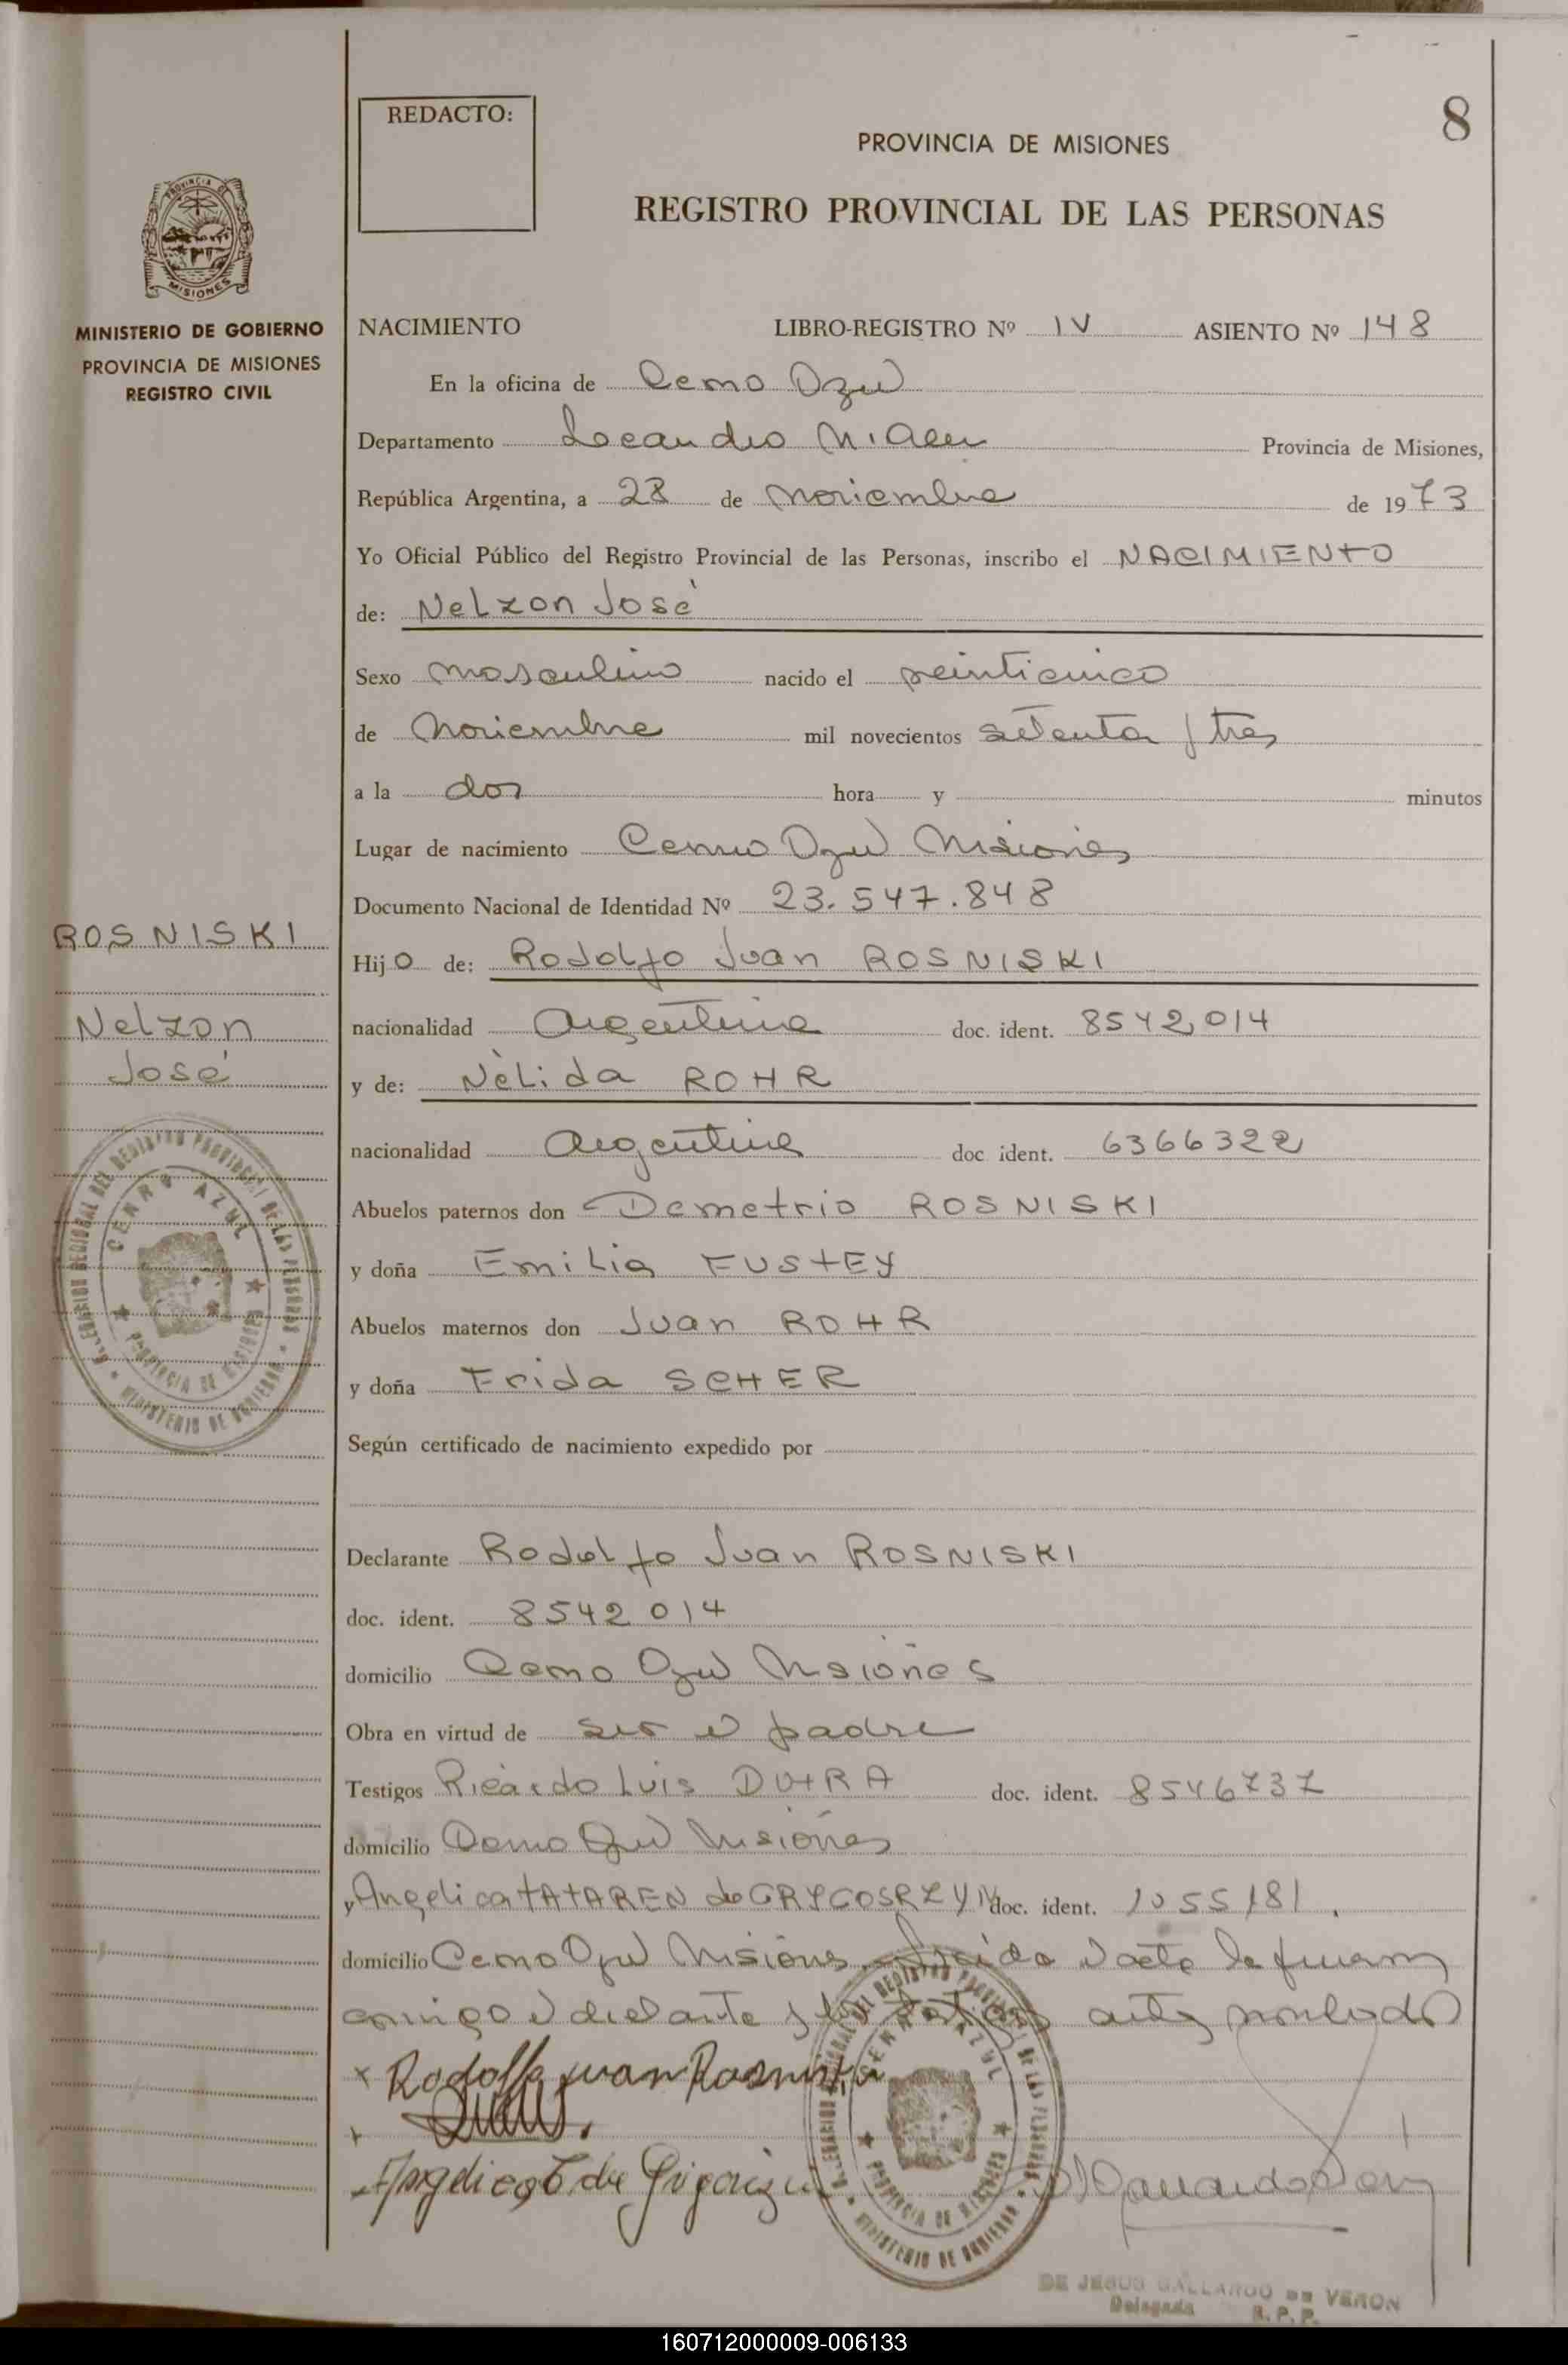 8
REDACTO:
PROVINCIA DE MISIONES
REGISTRO PROVINCIAL DE LAS PERSONAS
PROVINCIA DE
MISIONES
MINISTERIO DE GOBIERNO
PROVINCIA DE MISIONES
REGISTRO CIVIL
NACIMIENTO LIBRO-REGISTRO Nº IV ASIENTO Nº 148
En la oficina de Cerro Azul
Departamento Leandro N. Alem Provincia de Misiones,
República Argentina, a 28 de noviembre de 1973
Yo Oficial Público del Registro Provincial de las Personas, inscribo el NACIMIENTO
de: Nelzon José
Sexo masculino nacido el veinticinco
de noviembre mil novecientos setenta y tres
a la dos hora y minutos
Lugar de nacimiento Cerro Azul Misiones
Documento Nacional de Identidad Nº 23.547.848
Hijo de: Rodolfo Juan ROSNISKI
nacionalidad Argentina doc. ident. 8542014
y de: Nélida ROHR
nacionalidad Argentina doc ident. 6366322
Abuelos paternos don Demetrio ROSNISKI
y doña Emilia FUSTEY
Abuelos maternos don Juan ROHR
y doña Frida SCHER
Según certificado de nacimiento expedido por
Declarante Rodolfo Juan ROSNISKI
doc. ident. 8542014
domicilio Cerro Azul Misiones
Obra en virtud de ser el padre
Testigos Ricardo Luis DUTRA doc. ident. 8546737
domicilio Cerro Azul Misiones
y Angelica TATAREN de doc. ident. 1055181.
domicilio Cerro Azul Misiones. Leida el acta la firman
conmigo el declarante y los testigos antes nombrados
x Rodolfo Juan Rosniski
+
Angelica T de
ROSNISKI
Nelzon
José
DELEGACION REGIONAL DEL REGISTRO PROVINCIAL DE LAS PERSONAS
CERRO AZUL
PROVINCIA DE MISIONES
MINISTERIO DE GOBIERNO
DELEGACION REGIONAL DEL REGISTRO PROVINCIAL DE LAS PERSONAS
CERRO AZUL
PROVINCIA DE MISIONES
MINISTERIO DE GOBIERNO
DE JESUS GALLARDO DE VERON
Delegada R. P. P.
160712000009-006133